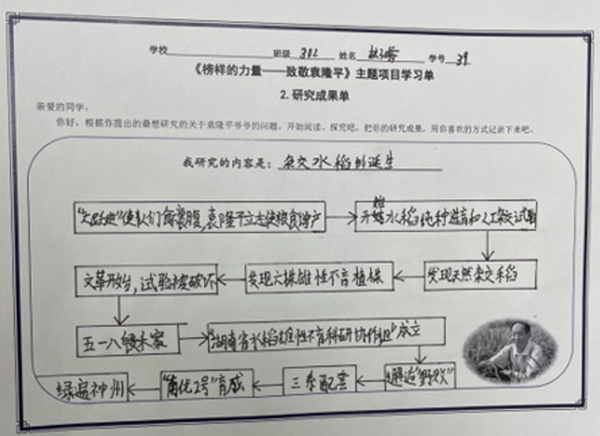 学校 班级 302 姓名 学号 39
《榜样的力量——致敬袁隆平》主题项目学习单
2. 研究成果单
亲爱的同学：
你好，根据你提出的最想研究的关于袁隆平爷爷的问题，开始阅读、探究吧，把你的研究成果，用你喜欢的方式记录下来吧。
我研究的内容是：杂交水稻的诞生
"大跃进"使人们 裹腹，袁隆平立志使粮食增产
开始水稻纯种选育和人工杂交试验
发现天然杂交稻
发现六株雄性不育植株
文革开始，试验被破坏
五一八毁禾案
"湖南省水稻雄性不育科研协作组"成立
邂逅"野败"
三系配套
"南优2号"育成
绿遍神州